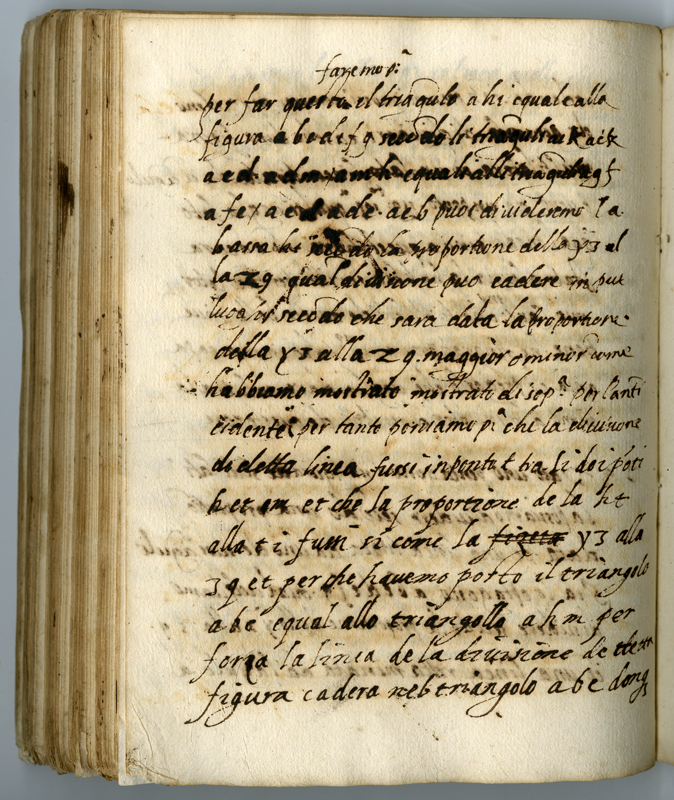 faremo pª
per far questo, il triãgulo a h i equale alla
figura a b c d e f g secõdo li triãguli a i k a c k
a e d. a d m x a m h equali alli triãguli a g f
a f e x a e d a d e. a e b puoi divideremo la
bassa h i secõdo la proportione della y 3 al
la z q qual divisione puo cadere in piu
luoghi secõdo che sara data la proportione
della y 3 alla z q. maggior o minor come
habbiamo mostrato mostrato di sopª per l'anti
cidente, per tanto poniamo pª che la divisione
di detta linea fussi in ponto t tra li doi põti
h et m et che la proportione de la h t
alla t i fussi si come la y 3 alla
3 q et perche havemo posto il triangolo
a b c equal allo triangollo a h m per
forza la linea de la divisione de
figura cadera nel triangolo a b c